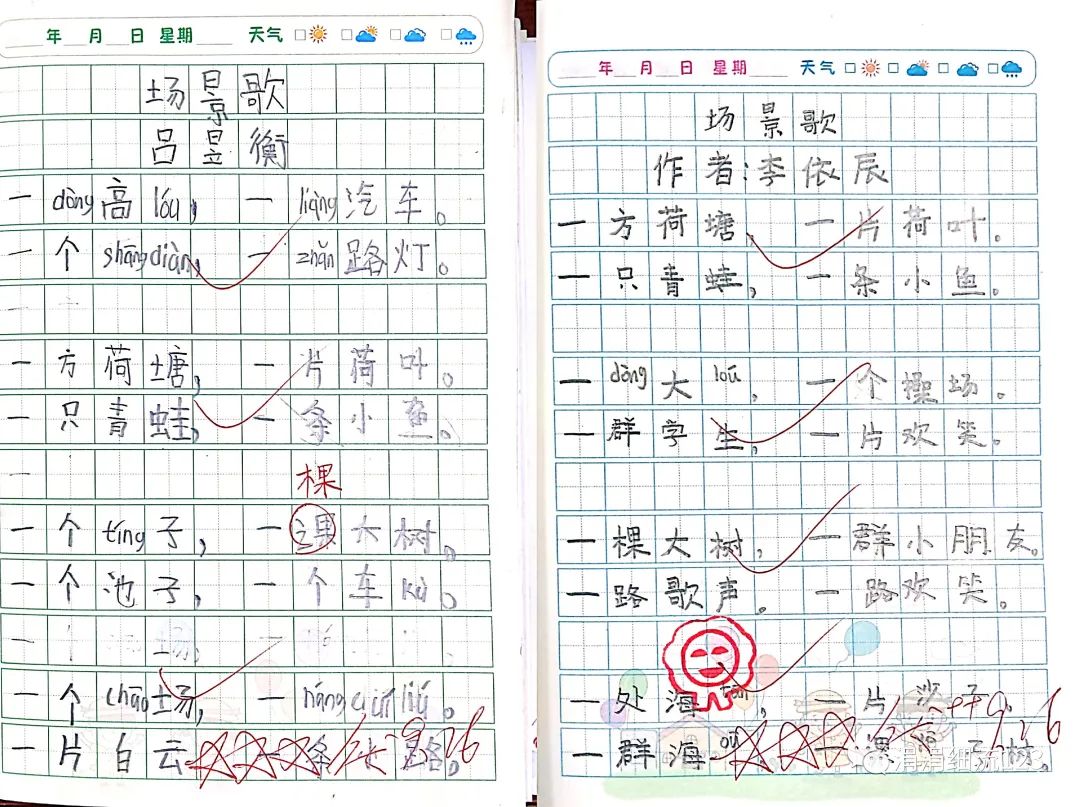 年 月 日 星期 天气
场景歌
吕昱衡
一dòng高lóu，一liàng汽车。
一个shāngdiàn，一zhǎn路灯。
一方荷塘，一片荷叶。
一只青蛙，一条小鱼。
棵
一个tíng子，一 大树。
一个池子，一个车kù。
一个cāo场，
一片白云 一条 路。
9.26
年 月 日 星期 天气
场景歌
作者：李依辰
一方荷塘，一片荷叶。
一只青蛙，一条小鱼。
一dòng大loú，一个操场。
一群学生，一片欢笑。
一棵大树，一群小朋友。
一路歌声。一路欢笑。
一处海tān，一片沙子
一群海oū 一 子树。
9.26
涓涓细流123